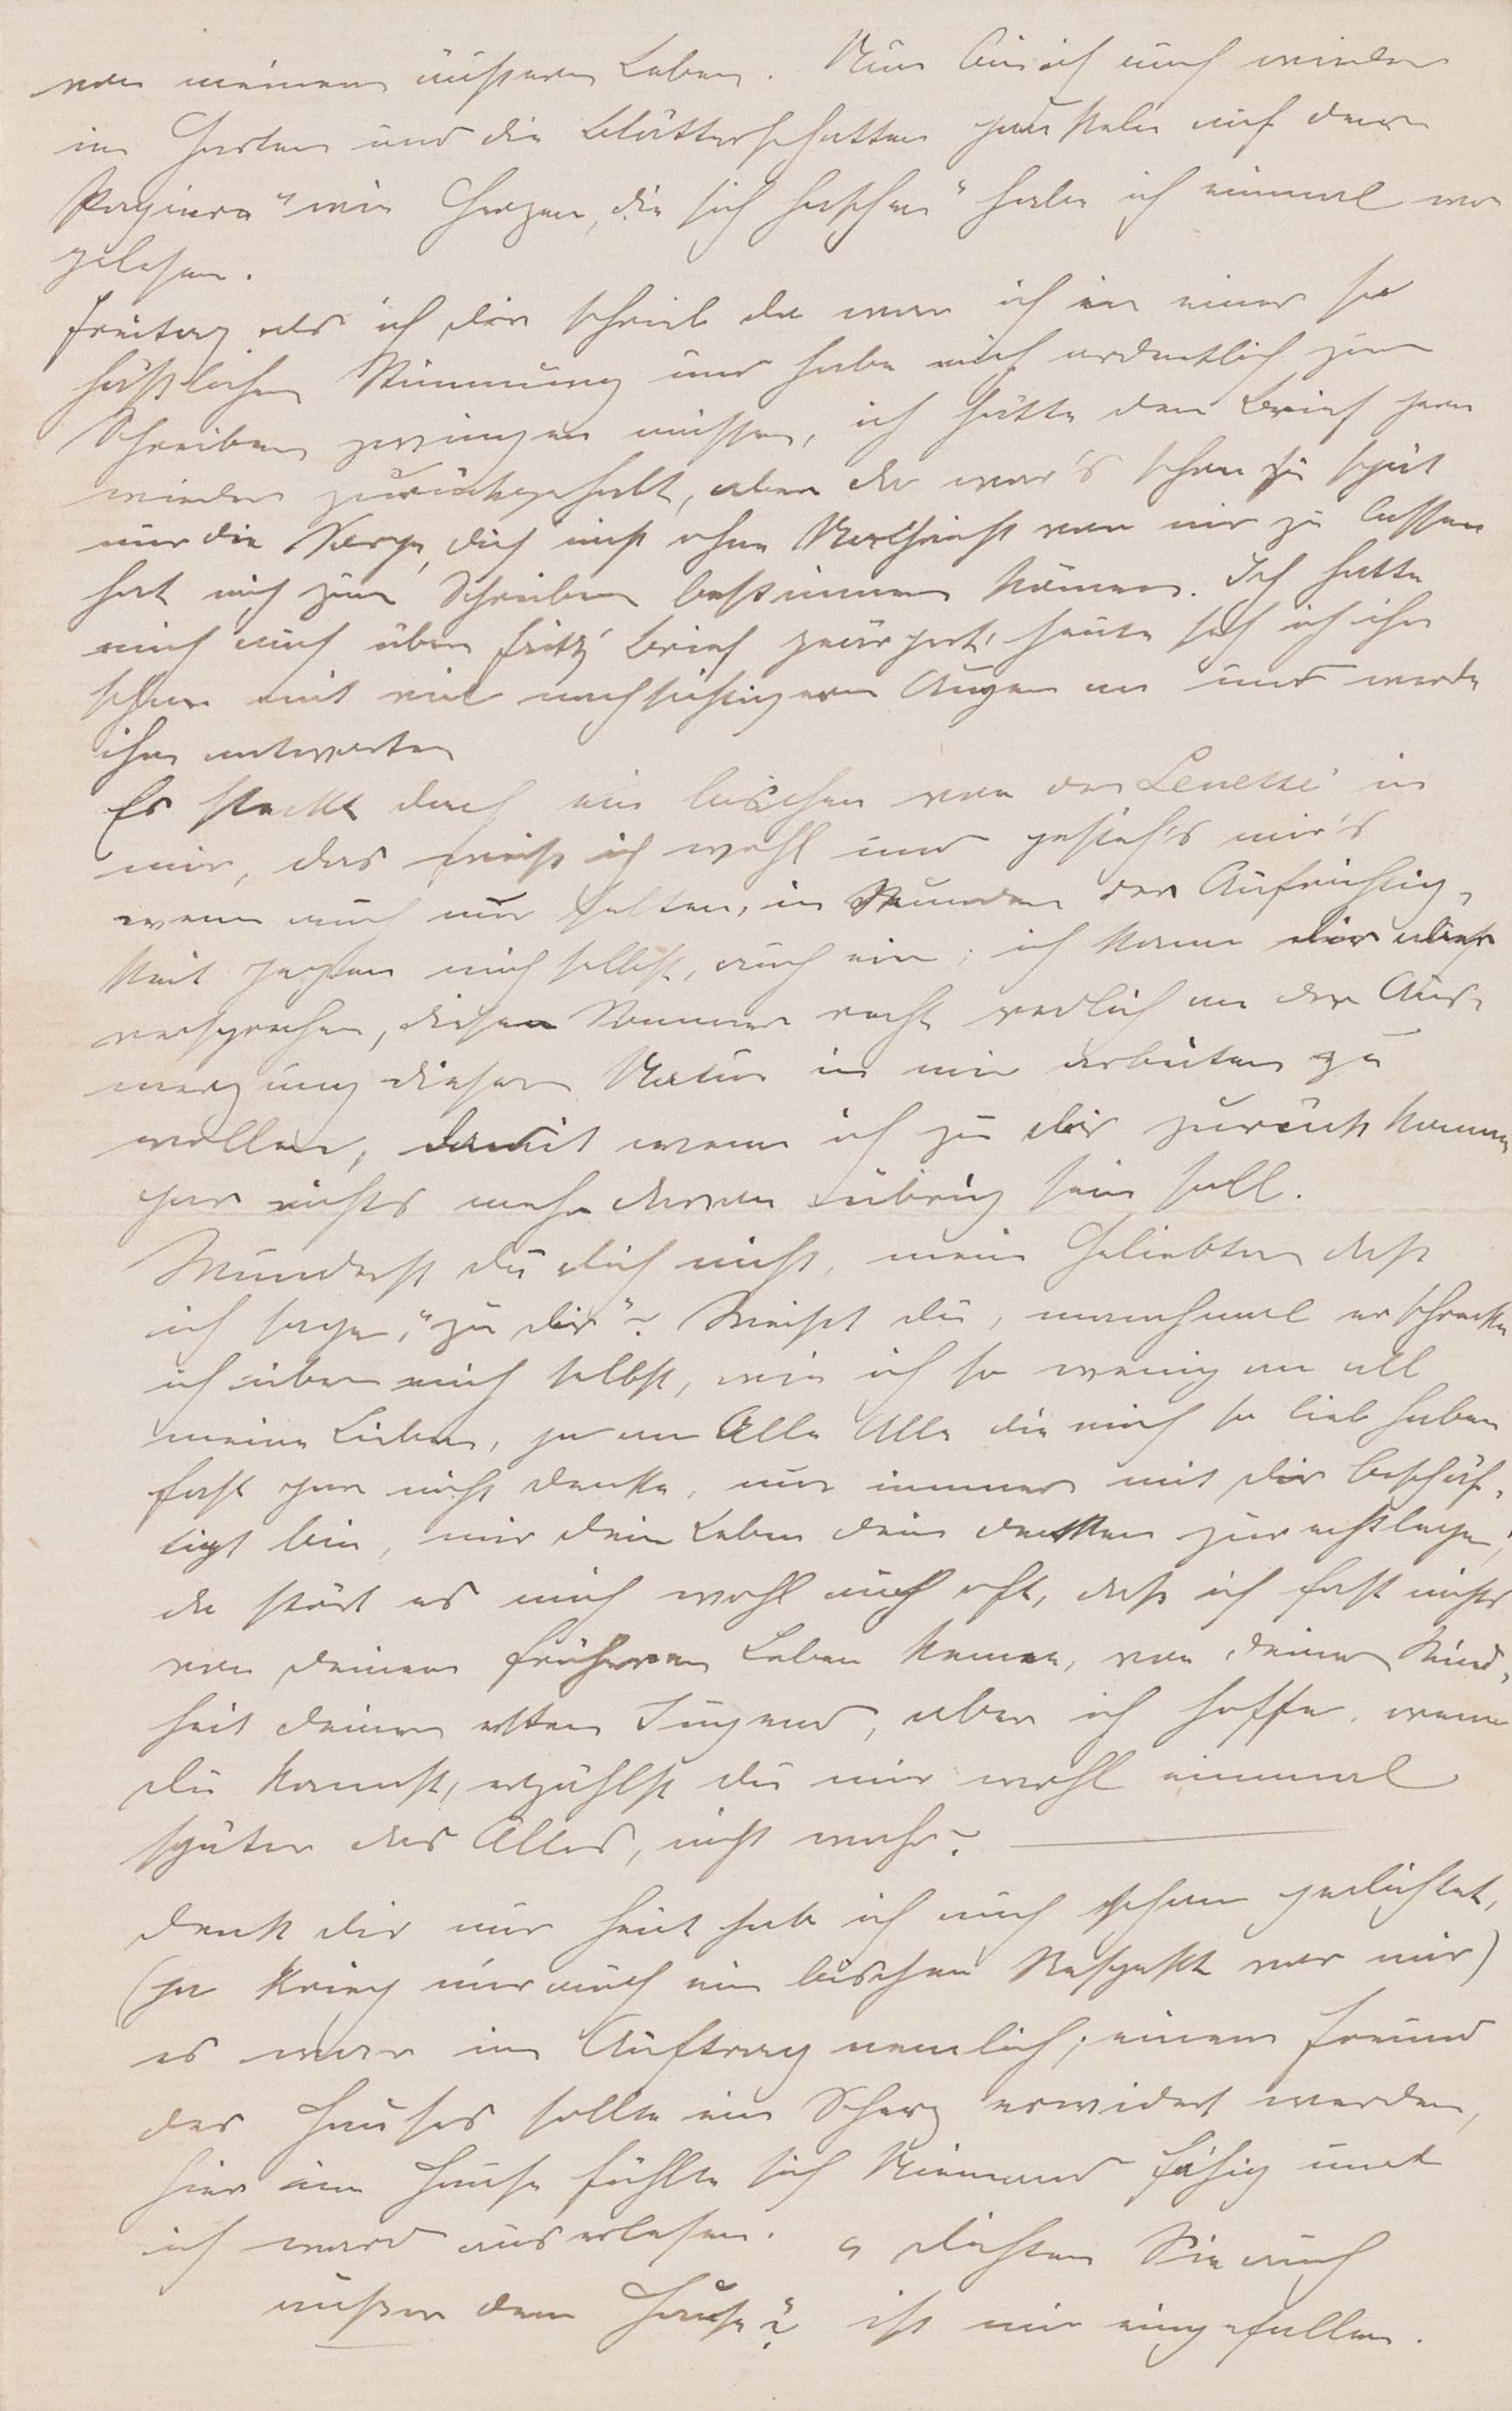 von meinem äußeren Leben. Nun bin ich auch wieder
im Garten und die Blätterschatten gaukeln auf dem
Papiere "wie Herzen, die sich haschen" habe ich einmal wo
gelesen.
Freitag als ich dir schrieb da war ich in einer so
häßlichen Stimmung und habe mich ordentlich zum
Schreiben zwingen müssen, ich hätte den Brief gern
wieder zurückgehabt, aber da war's schon zu spät
nur die Sorge, dich nicht ohne Nachricht von mir zu lassen
hat mich zum Schreiben bestimmen können. Ich hatte
mich auch über Fritz' Brief geärgert, heute seh ich ihn
schon mit viel nachsichtigeren Augen an und werde
ihm antworten
Es steckt doch ein bischen von der Lenette in
mir, das weiß ich wohl und gesteh's mir's
wenn auch nur selten, in Stunden der Aufrichtig-
keit gegen mich selbst, auch ein; ich kann dir aber
versprechen, diesen Sommer recht redlich an der Aus-
merzung dieser Natur in mir arbeiten zu
wollen, damit wenn ich zu dir zurück komme
gar nichts mehr davon übrig sein soll.
Wunderst du dich nicht, mein Geliebter daß
ich sage, "zu dir"? Weißt du, manchmal erschrecke
ich über mich selbst, wie ich so wenig an all
meine Lieben, ja an Alle Alle die mich so lieb haben
fast gar nicht denke, nur immer mit dir beschäf-
tigt bin, mir dein Leben dein denken zurechtlege,
da stört es mich wohl auch oft, daß ich fast nichts
von deinem früheren Leben kenne, von deiner Kind-
heit deiner ersten Jugend, aber ich hoffe, wenn
du kannst, erzählst du mir wohl einmal
später das Alles, nicht wahr?
denk dir nur heut hab ich auch schon gedichtet,
(ja krieg nur auch ein bischen Respekt vor mir)
es war im Auftrag nemlich; einem Freund
des Hauses sollte ein Scherz erwidert werden,
hier im Hause fühlte sich Niemand fähig und
ich ward auserlesen. "dichten Sie auch
außer dem Hause"? ist mir eingefallen.